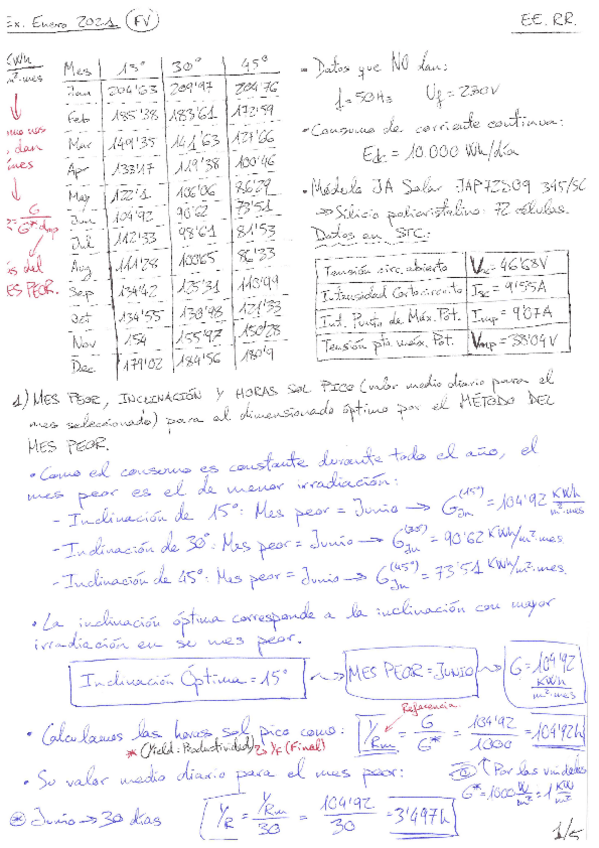 Ex. Enero 2021 (FV) EE.RR.
KWh
m²·mes
Mes 15° 30° 45°
Jan 204'63 209'97 204'76
Feb 185'38 183'61 172'59
Mar 149'35 141'63 127'66
Apr 133'17 119'38 100'46
May 122'1 106'06 86'29
Jun 104'92 90'62 73'51
Jul 112'33 98'61 81'53
Aug 111'28 100'65 86'33
Sep 134'42
Oct 134'55 130'98 121'33
Nov 154 155'97 150'23
Dec 179'02 184'56 180'9
dan
G
del
PEOR.
• Datos que NO dan:
f=50Hz Uf = 230V
• Consumo de corriente continua:
Edc = 10.000 Wh/día
• Módulo JA Solar JAP72S09 345/SC
⇒ Silicio policristalino: 72 células.
Datos en STC:
Tensión circ. abierto Voc = 46'68V
Intensidad Cortocircuito Isc = 9'55A
Int. Punto de Máx. Pot. Imp = 9'07A
Tensión pto máx. Pot. Vmp = 38'04V
1) MES PEOR, INCLINACIÓN Y HORAS SOL PICO (valor medio diario para el
mes seleccionado) para el dimensionado óptimo por el MÉTODO DEL
MES PEOR.
• Como el consumo es constante durante todo el año, el
mes peor es el de menor irradiación:
- Inclinación de 15°: Mes peor = Junio → G Jun (15°) = 104'92 KWh/m²·mes
- Inclinación de 30°: Mes peor = Junio → G Jun (30°) = 90'62 KWh/m²·mes.
- Inclinación de 45°: Mes peor = Junio → G Jun (45°) = 73'51 KWh/m²·mes.
• La inclinación óptima corresponde a la inclinación con mayor
irradiación en su mes peor.
Inclinación Óptima = 15° → MES PEOR = JUNIO → G = 104'92 KWh/m²·mes
Referencia
• Calculamos las horas sol pico como: YRm = G/G* = 104'92/1000 = 104'92h
* (Yield: Productividad) YF (Final)
• Su valor medio diario para el mes peor:
Por las unidades
G* = 1000 W/m² = 1 KW/m²
* Junio → 30 días YR = YRm/30 = 104'92/30 = 3'497h
1/5